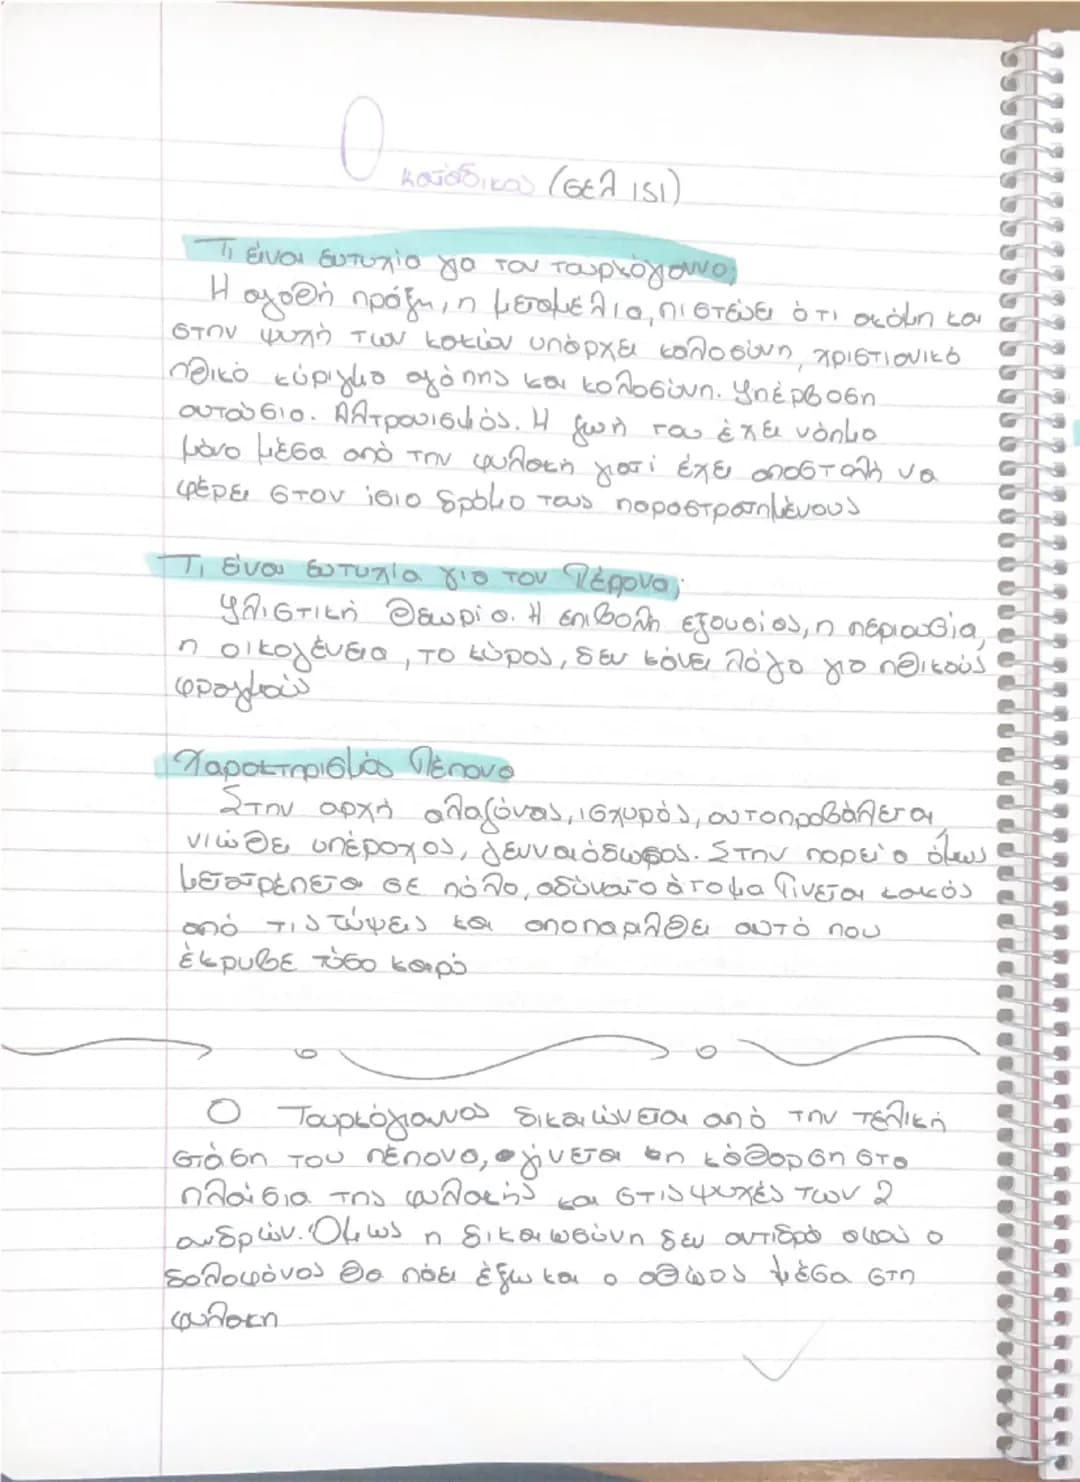 Ο κατάδικος (σελ 151)
Τι είναι ευτυχία για τον Τουρκόγιαννο;
Η αγαθή πράξη, η μεταμέλια, πιστεύει ότι ακόμη και
στην ψυχή των κακών υπάρχει καλοσύνη, χριστιανικό
ηθικό κύριγμα αγάπης και καλοσύνη. Υπέρβαση
αυταύσια. Αλτρουισμός. Η ζωή του έχει νόημα
μόνο μέσα από την φυλακή γιατί έχει αποστολή να
φέρει στον ίσιο δρόμο τους παραστρατημένους
Τι είναι ευτυχία για τον Πέπονα;
Υλιστική θεωρία. Η επιβολή εξουσίας, η περιουσία,
η οικογένεια, το κύρος, δεν κάνει λόγο για ηθικούς
φραγμούς
Χαρακτηρισμός Πέπονα
Στην αρχή αλαζόνας, ισχυρός, αυτοπροβάλεται
νιώθει υπέροχος, γενναιόδωρος. Στην πορεία όμως
μετατρέπεται σε πάλο, αδύναμο άτομο Γίνεται κακός
από τις τύψεις και αποπαριλθει αυτό που
έκρυβε τόσο καιρό
Ο Τουρκόγιαννος δικαιώνεται από την τελική
στάση του πέπονα, γίνεται η κάθαρση στα
πλαίσια της φυλακής και στις ψυχές των 2
ανδρών. Όμως η δικαιωσύνη δεν αντιδρά αφού ο
δολοφόνος θα πάει έξω και ο αθώος μέσα στη
φυλακη